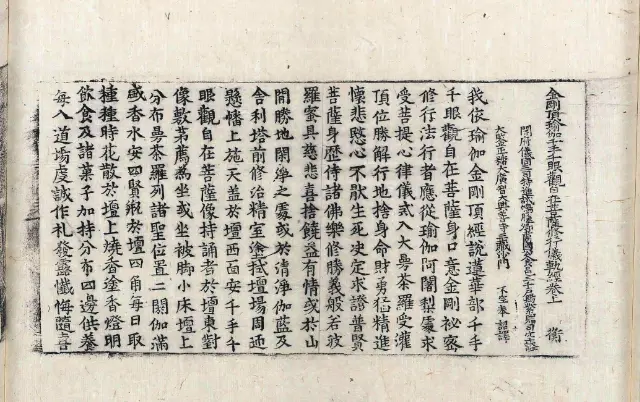 金剛頂瑜伽千手千眼觀自在菩薩修行儀軌經卷上 衡
開府儀同三司特進試鴻臚卿肅國公食邑三千戶賜紫贈司空謚
大鑒正號大廣智大興善寺三藏沙門 不空奉詔譯
我依瑜伽金剛頂經說蓮華部千手
千眼觀自在菩薩身口意金剛祕密
修行法行者應從瑜伽阿闍梨處求
受菩提心律儀或入大曼荼羅受灌
頂位勝解行地捨身命財勇猛精進
懷悲愍心不猒生死決定求證普賢
菩薩身歷侍諸佛樂修勝義般若波
羅蜜具慈悲喜捨饒益有情或於山
間勝地閑淨之處或於清淨伽藍及
舍利塔前修治精室塗拭壇場周迊
懸幡上施天盖於壇西面安千手千
眼觀自在菩薩像持誦者於壇東對
像敷茅薦爲坐或坐被脚小床壇上
分布曼荼羅列諸聖位置二閼伽滿
盛香水安四賢瓶於壇四角每日取
種種時花散於壇上燒香塗香燈明
飲食及諸菓子加持分布四邊供養
每入道場虔誠作礼發露懺悔隨喜